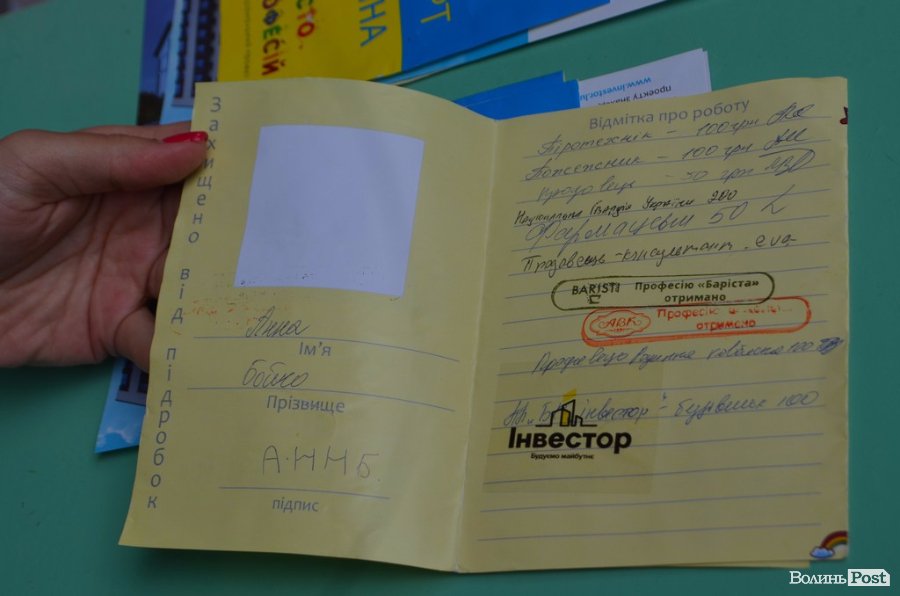 СТО..
ОФЕСІЙ
НА
РТ
www.investor.lu
проекту
Захищено від підробок
Анна
Ім'я
бойко
Прізвище
А.ННБ
підпис
Відмітка про роботу
Піротехнік - 100 грн
Пожежник - 100 грн
продавець - 70 грн
Національна Гвардія України 200
Фармацевт 50
Продавець-консультант. eva
BARISTI Професію «Баріста»
отримано
АВК Професію
отримано
100
Інвестор" - будівельник 100
Інвестор
Будуємо майбутнє
ВолиньPost